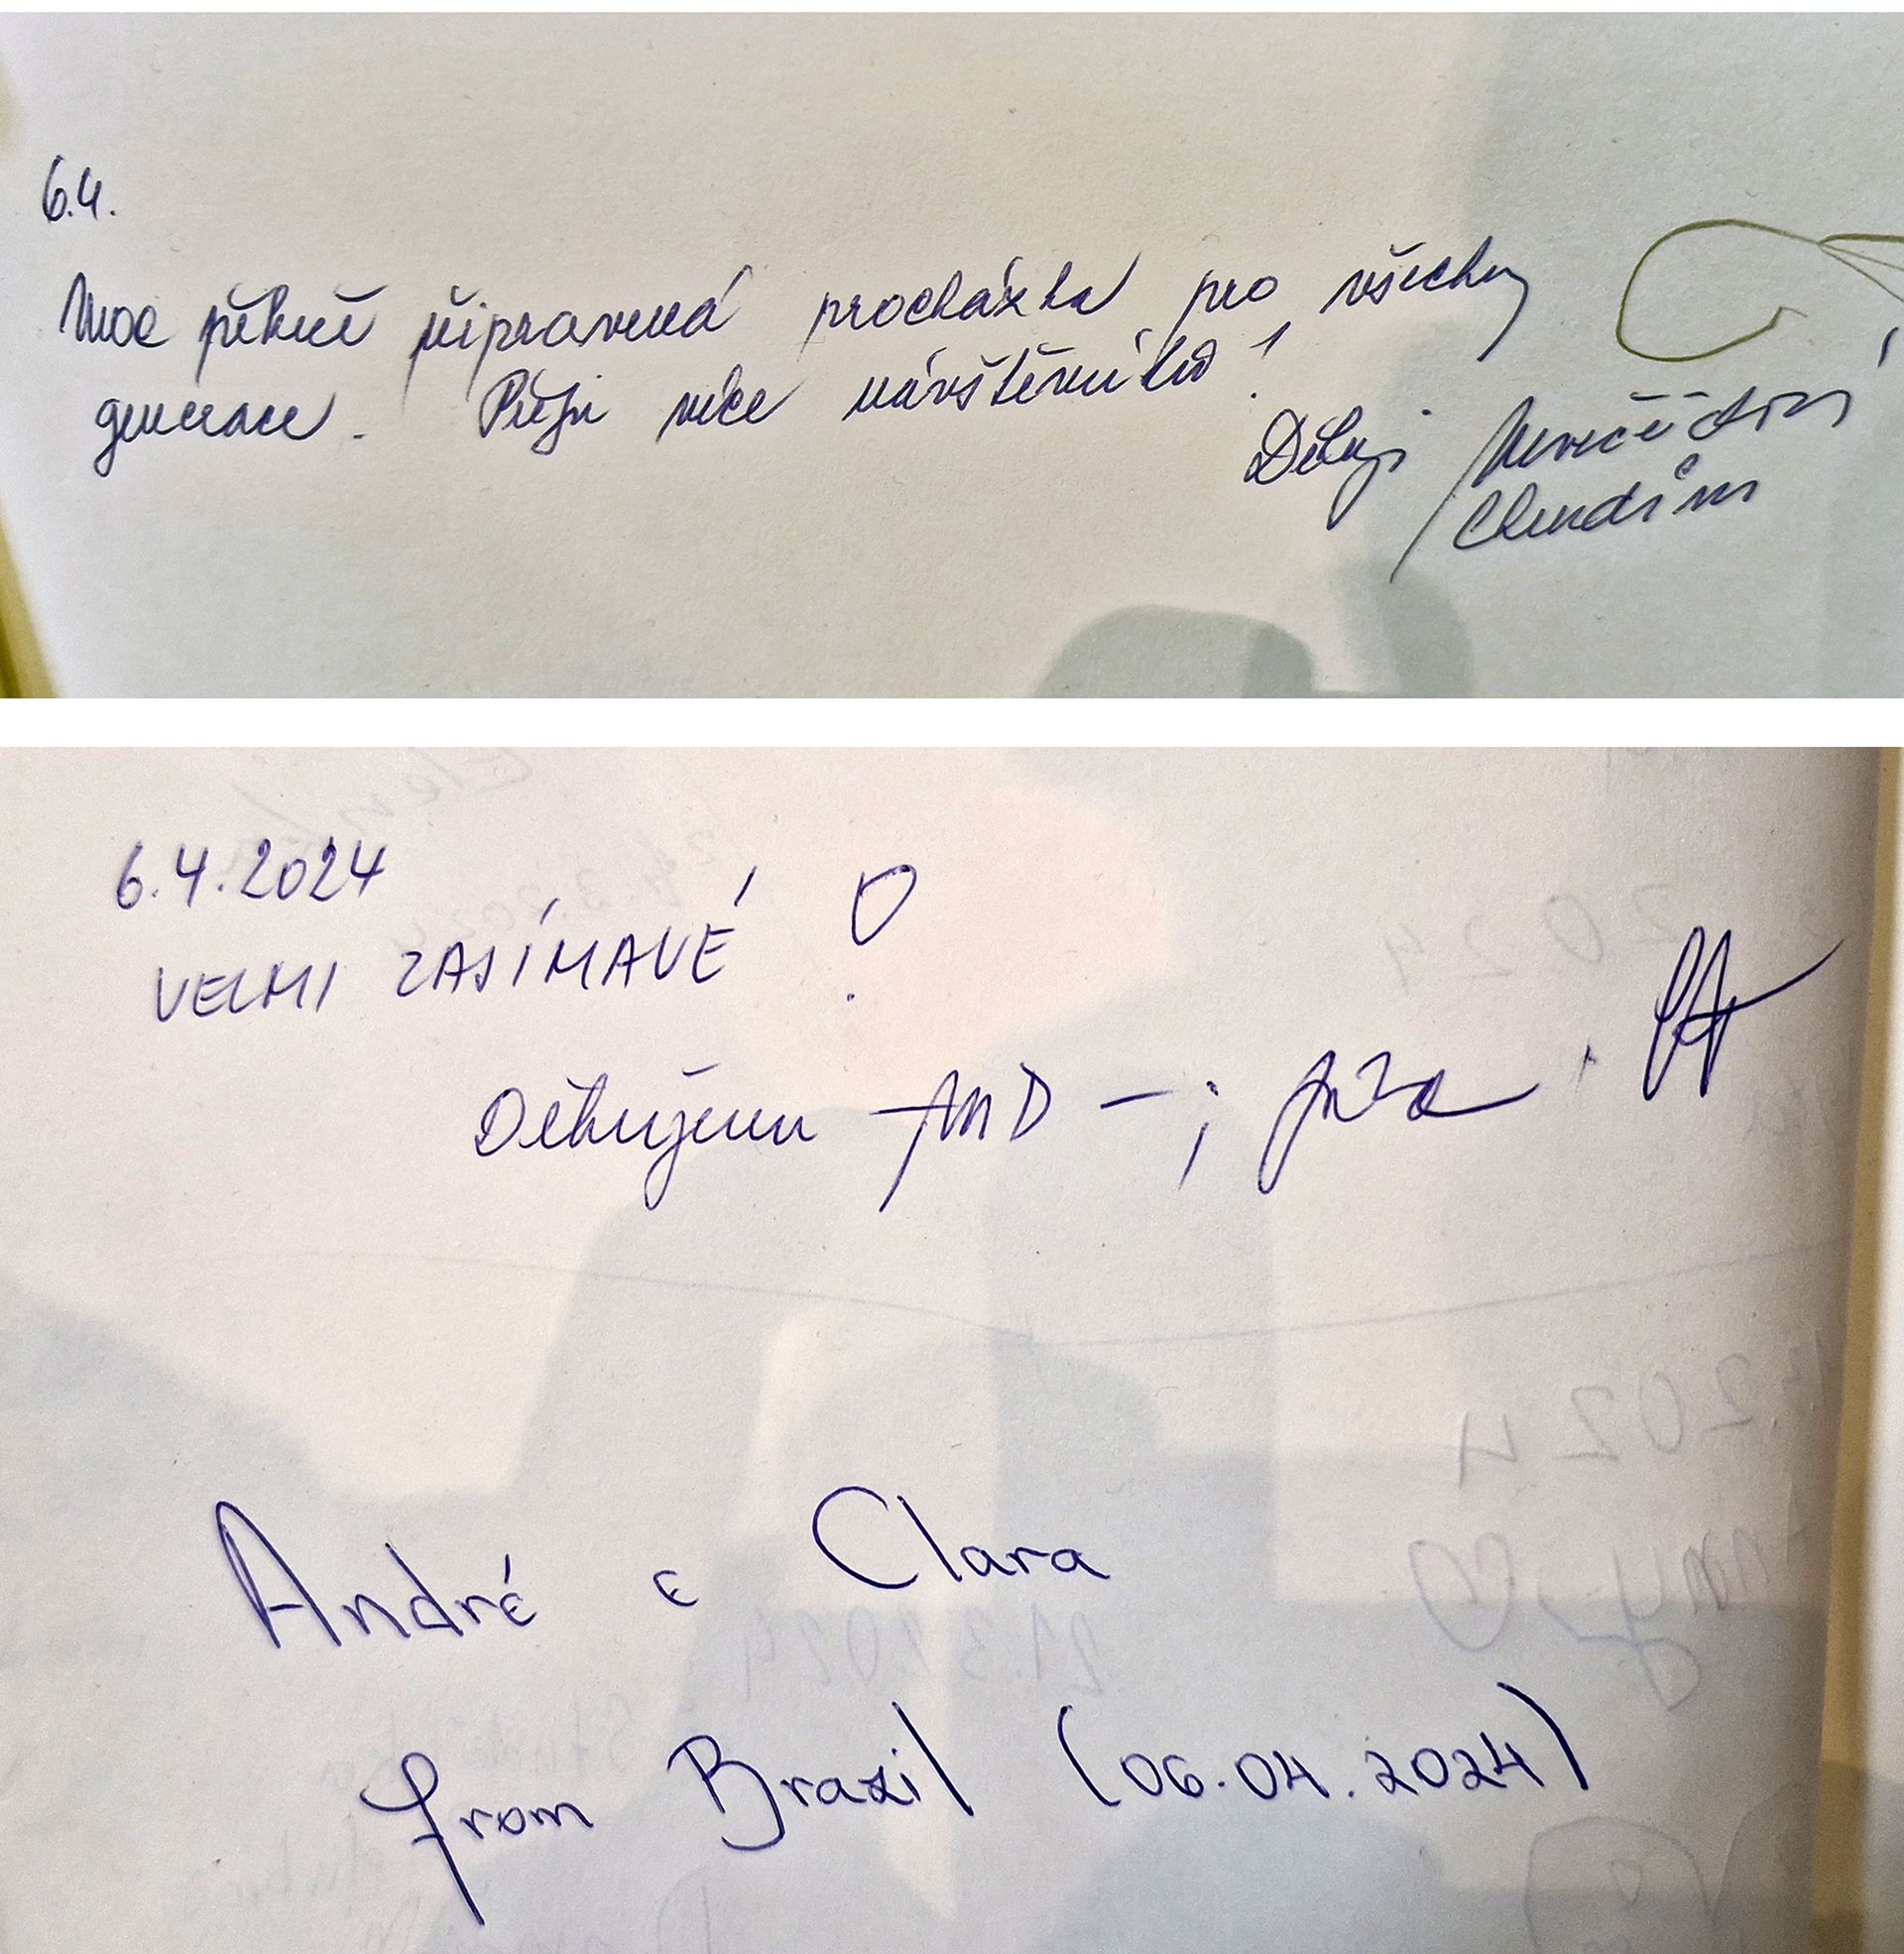 6.4.
Moc pěkně připravená procházka pro všechny
generace. Přeji více návštěvníků!
Děkuji
6.4.2024
VELMI ZAJÍMAVÉ!
Děkujeme
André e Clara
from Brazil (06.04.2024)